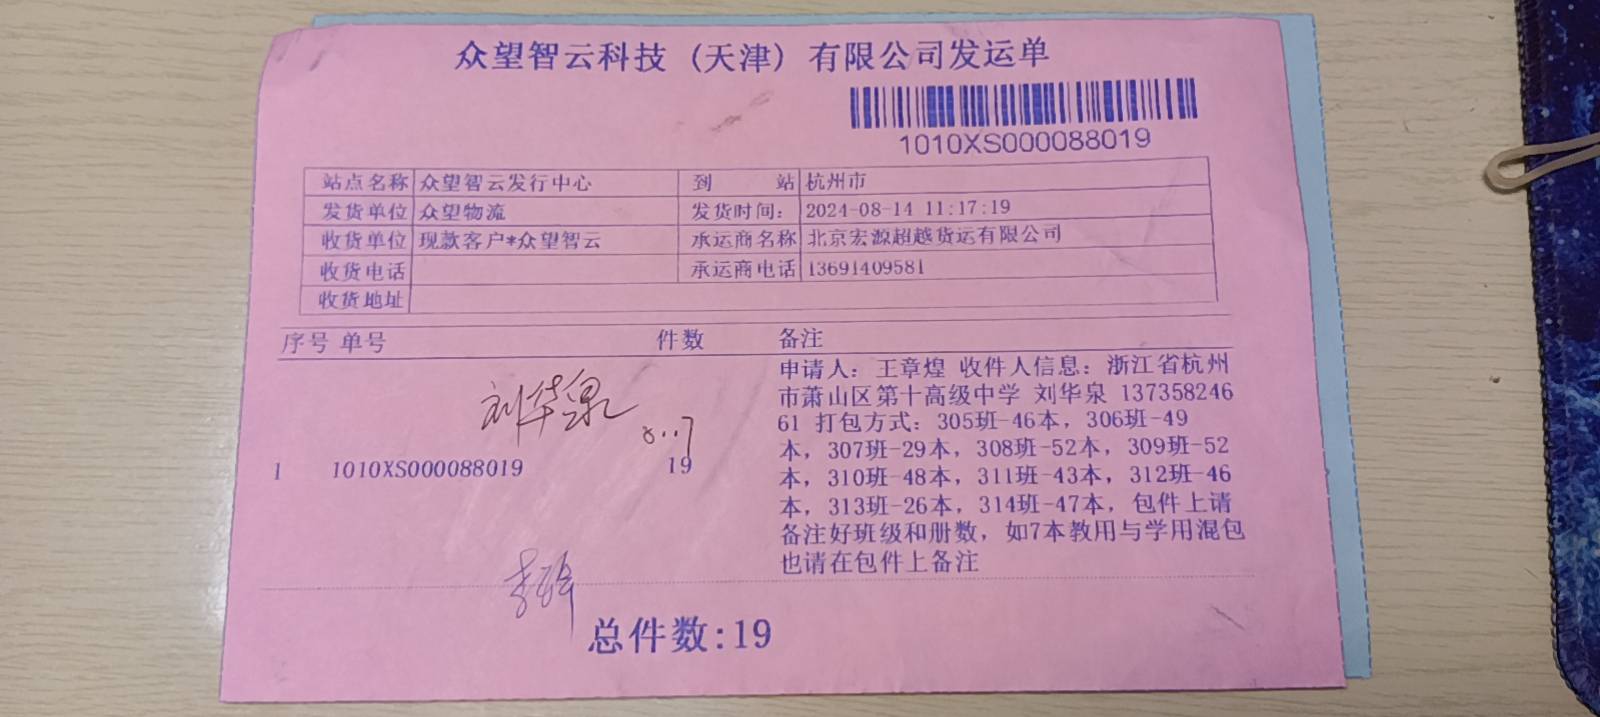 众望智云科技（天津）有限公司发运单
1010XS000088019
站点名称 众望智云发行中心 到 站 杭州市
发货单位 众望物流 发货时间： 2024-08-14 11:17:19
收货单位 现款客户*众望智云 承运商名称 北京宏源超越货运有限公司
收货电话 承运商电话 13691409581
收货地址
序号 单号 件数 备注
申请人：王章煌 收件人信息：浙江省杭州
市萧山区第十高级中学 刘华泉 137358246
61 打包方式：305班-46本，306班-49
本，307班-29本，308班-52本，309班-52
本，310班-48本，311班-43本，312班-46
本，313班-26本，314班-47本，包件上请
备注好班级和册数，如7本教用与学用混包
也请在包件上备注
刘华泉
1 1010XS000088019 19
总件数:19